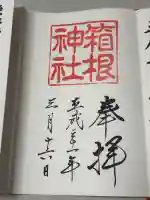 奉拝
箱根
神社
平成 年
三月十六日